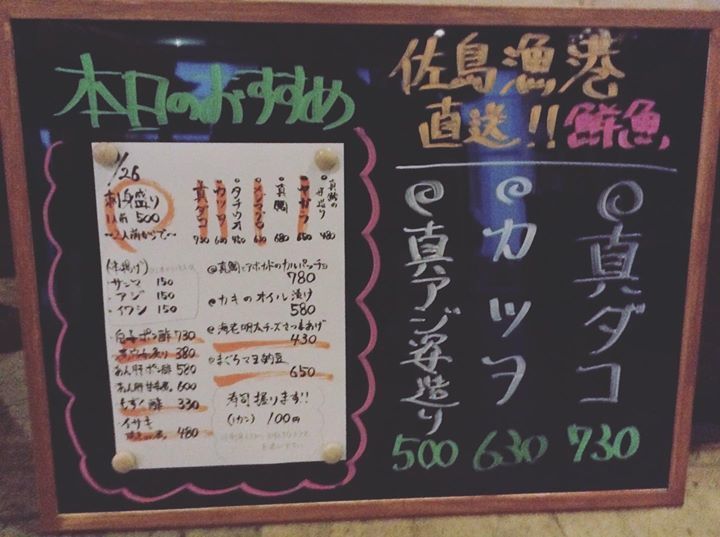 本日のおすすめ
佐島漁港
直送!! 鮮魚
真ダコ
730
カツオ
630
真アジ姿造り
500
1/26
刺身盛り
1人前 500
〜2人前から〜
真ダコ 730
カツオ 630
タチウオ
真鯛 680
サンマ 150
アジ 150
イワシ 150
白子ポン酢 730
380
あん肝ポン酢 580
あん肝 600
もずく酢 330
イサキ
480
真鯛とアボカドのカルパッチョ
780
カキのオイル漬け
580
海老明太チーズさつまあげ
430
まぐろマヨ納豆
650
寿司握ります!!
(1カン) 100円